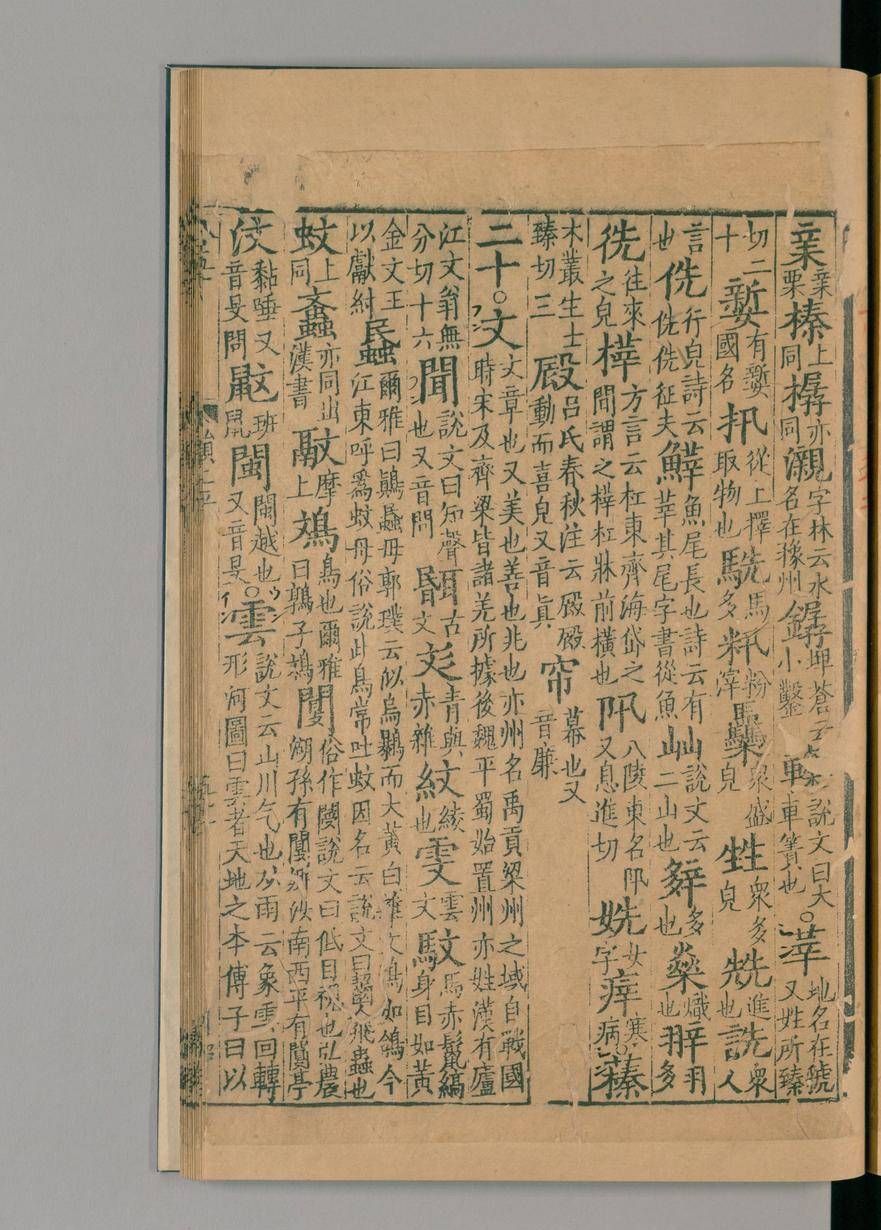 亲栗榛上同樼亦同瀙字林云水名在豫州鋅小鑿說文曰大車簀也○莘地名在虢又姓所臻
切二十㜪有㜪國名扟從上擇取物也駪馬多籸粉滓灥泉盛皃甡眾多皃兟進也詵眾人
言也侁行皃詩云侁侁征夫鮮魚尾長也詩云有莘其尾字書從魚屾說文云二山也多也燊熾也羽多
往來之皃樺方言云杠東齊海岱之間謂之樺杠牀前橫也阠八陵東名阠又息進切姺女字痒寒病○蓁
木叢生士臻切三㲀呂氏春秋注云㲀㲀動而喜皃又音真帘幕也又音廉
二十○文文章也又美也善也兆也亦州名禹貢梁州之域自戰國時宋及齊梁皆諸羌所據後魏平蜀始置州亦姓漢有廬
江文翁無分切十六聞說文曰知聲也又音問䎽古文彣青與赤雜紋綾也雯雲文馼馬赤鬣縞身目如黃
金文王以獻紂䘇爾雅曰鷏蟁母郭璞云似烏鷃而大黃白雜文鳴如鴿今江東呼爲蚊母俗說此鳥常吐蚊因名云說文曰齧人飛蟲也
蚊上同蟁亦同出漢書䎹摩上鳼鳥也爾雅曰鶉子鳼閺俗作閿說文曰低目視也弘農湖縣有閿鄉汝南西平有閿亭
汶黏唾又音旻問鼤班鼠閩閩越也又音旻○雲說文云山川气也从雨云象雲回轉形河圖曰雲者天地之本傅子曰以